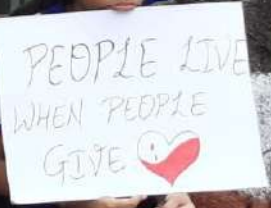 PEOPLE LIVE
WHEN PEOPLE
GIVE